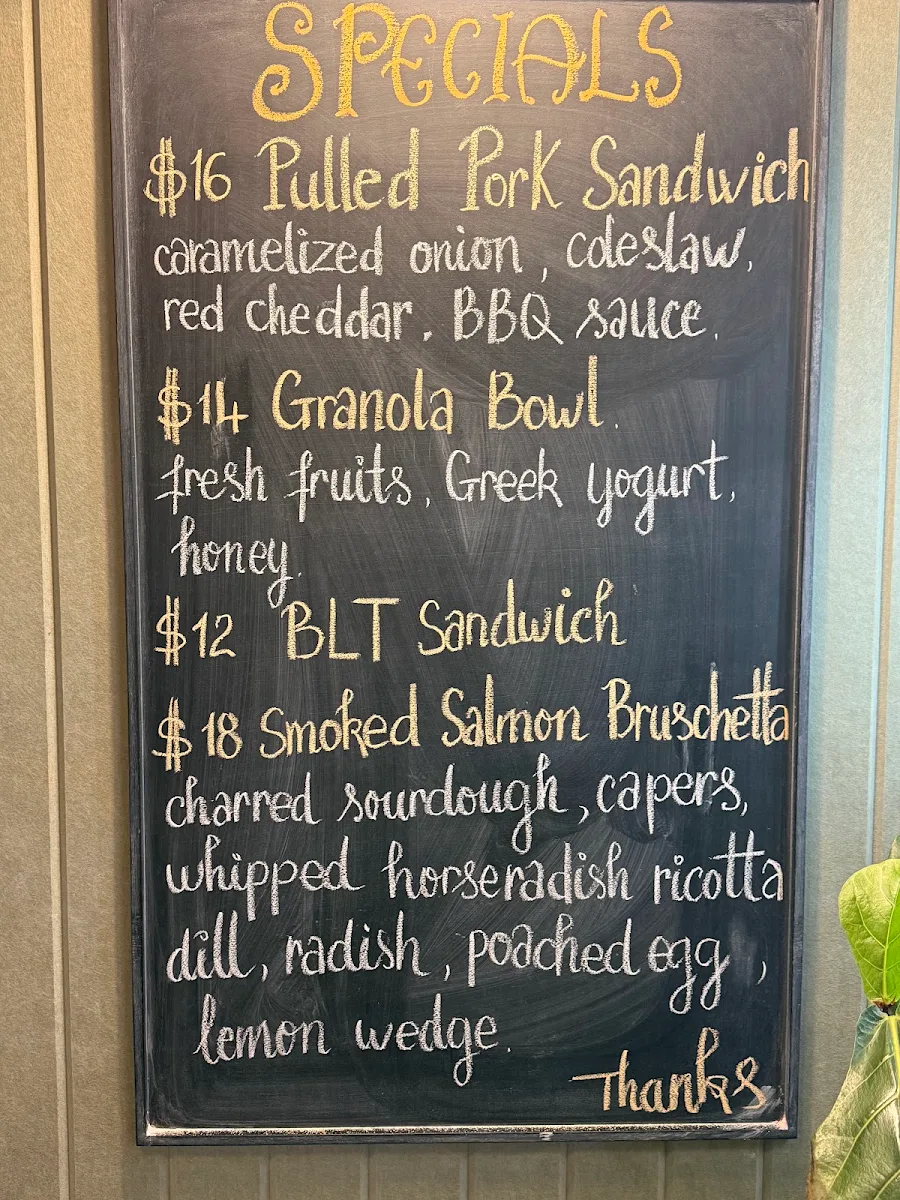 SPECIALS
$16 Pulled Pork Sandwich
caramelized onion, coleslaw,
red cheddar, BBQ sauce.
$14 Granola Bowl.
fresh fruits, Greek yogurt,
honey.
$12 BLT Sandwich
$18 Smoked Salmon Bruschetta
charred sourdough, capers,
whipped horseradish ricotta
dill, radish, poached egg,
lemon wedge.
Thanks